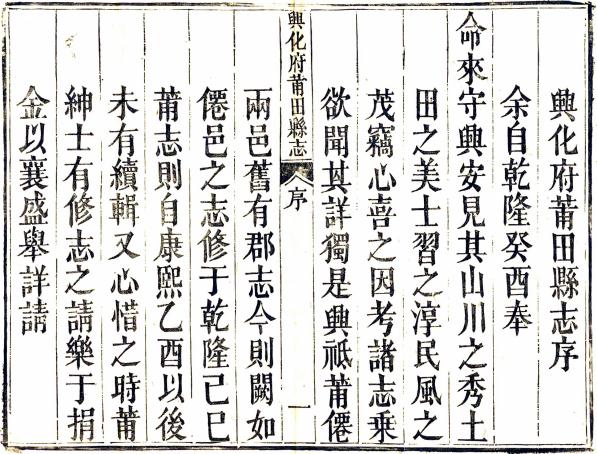 興化府莆田縣志序
余自乾隆癸酉奉
命來守興安見其山川之秀土
田之美士習之淳民風之
茂竊心喜之因考諸志乗
欲聞其詳獨是興祗莆僊
興化府莆田縣志
序
一
兩邑舊有郡志今則闕如
僊邑之志修于乾隆己巳
莆志則自康熙乙酉以後
未有續輯又心惜之時莆
紳士有修志之請樂于捐
金以襄盛舉詳請